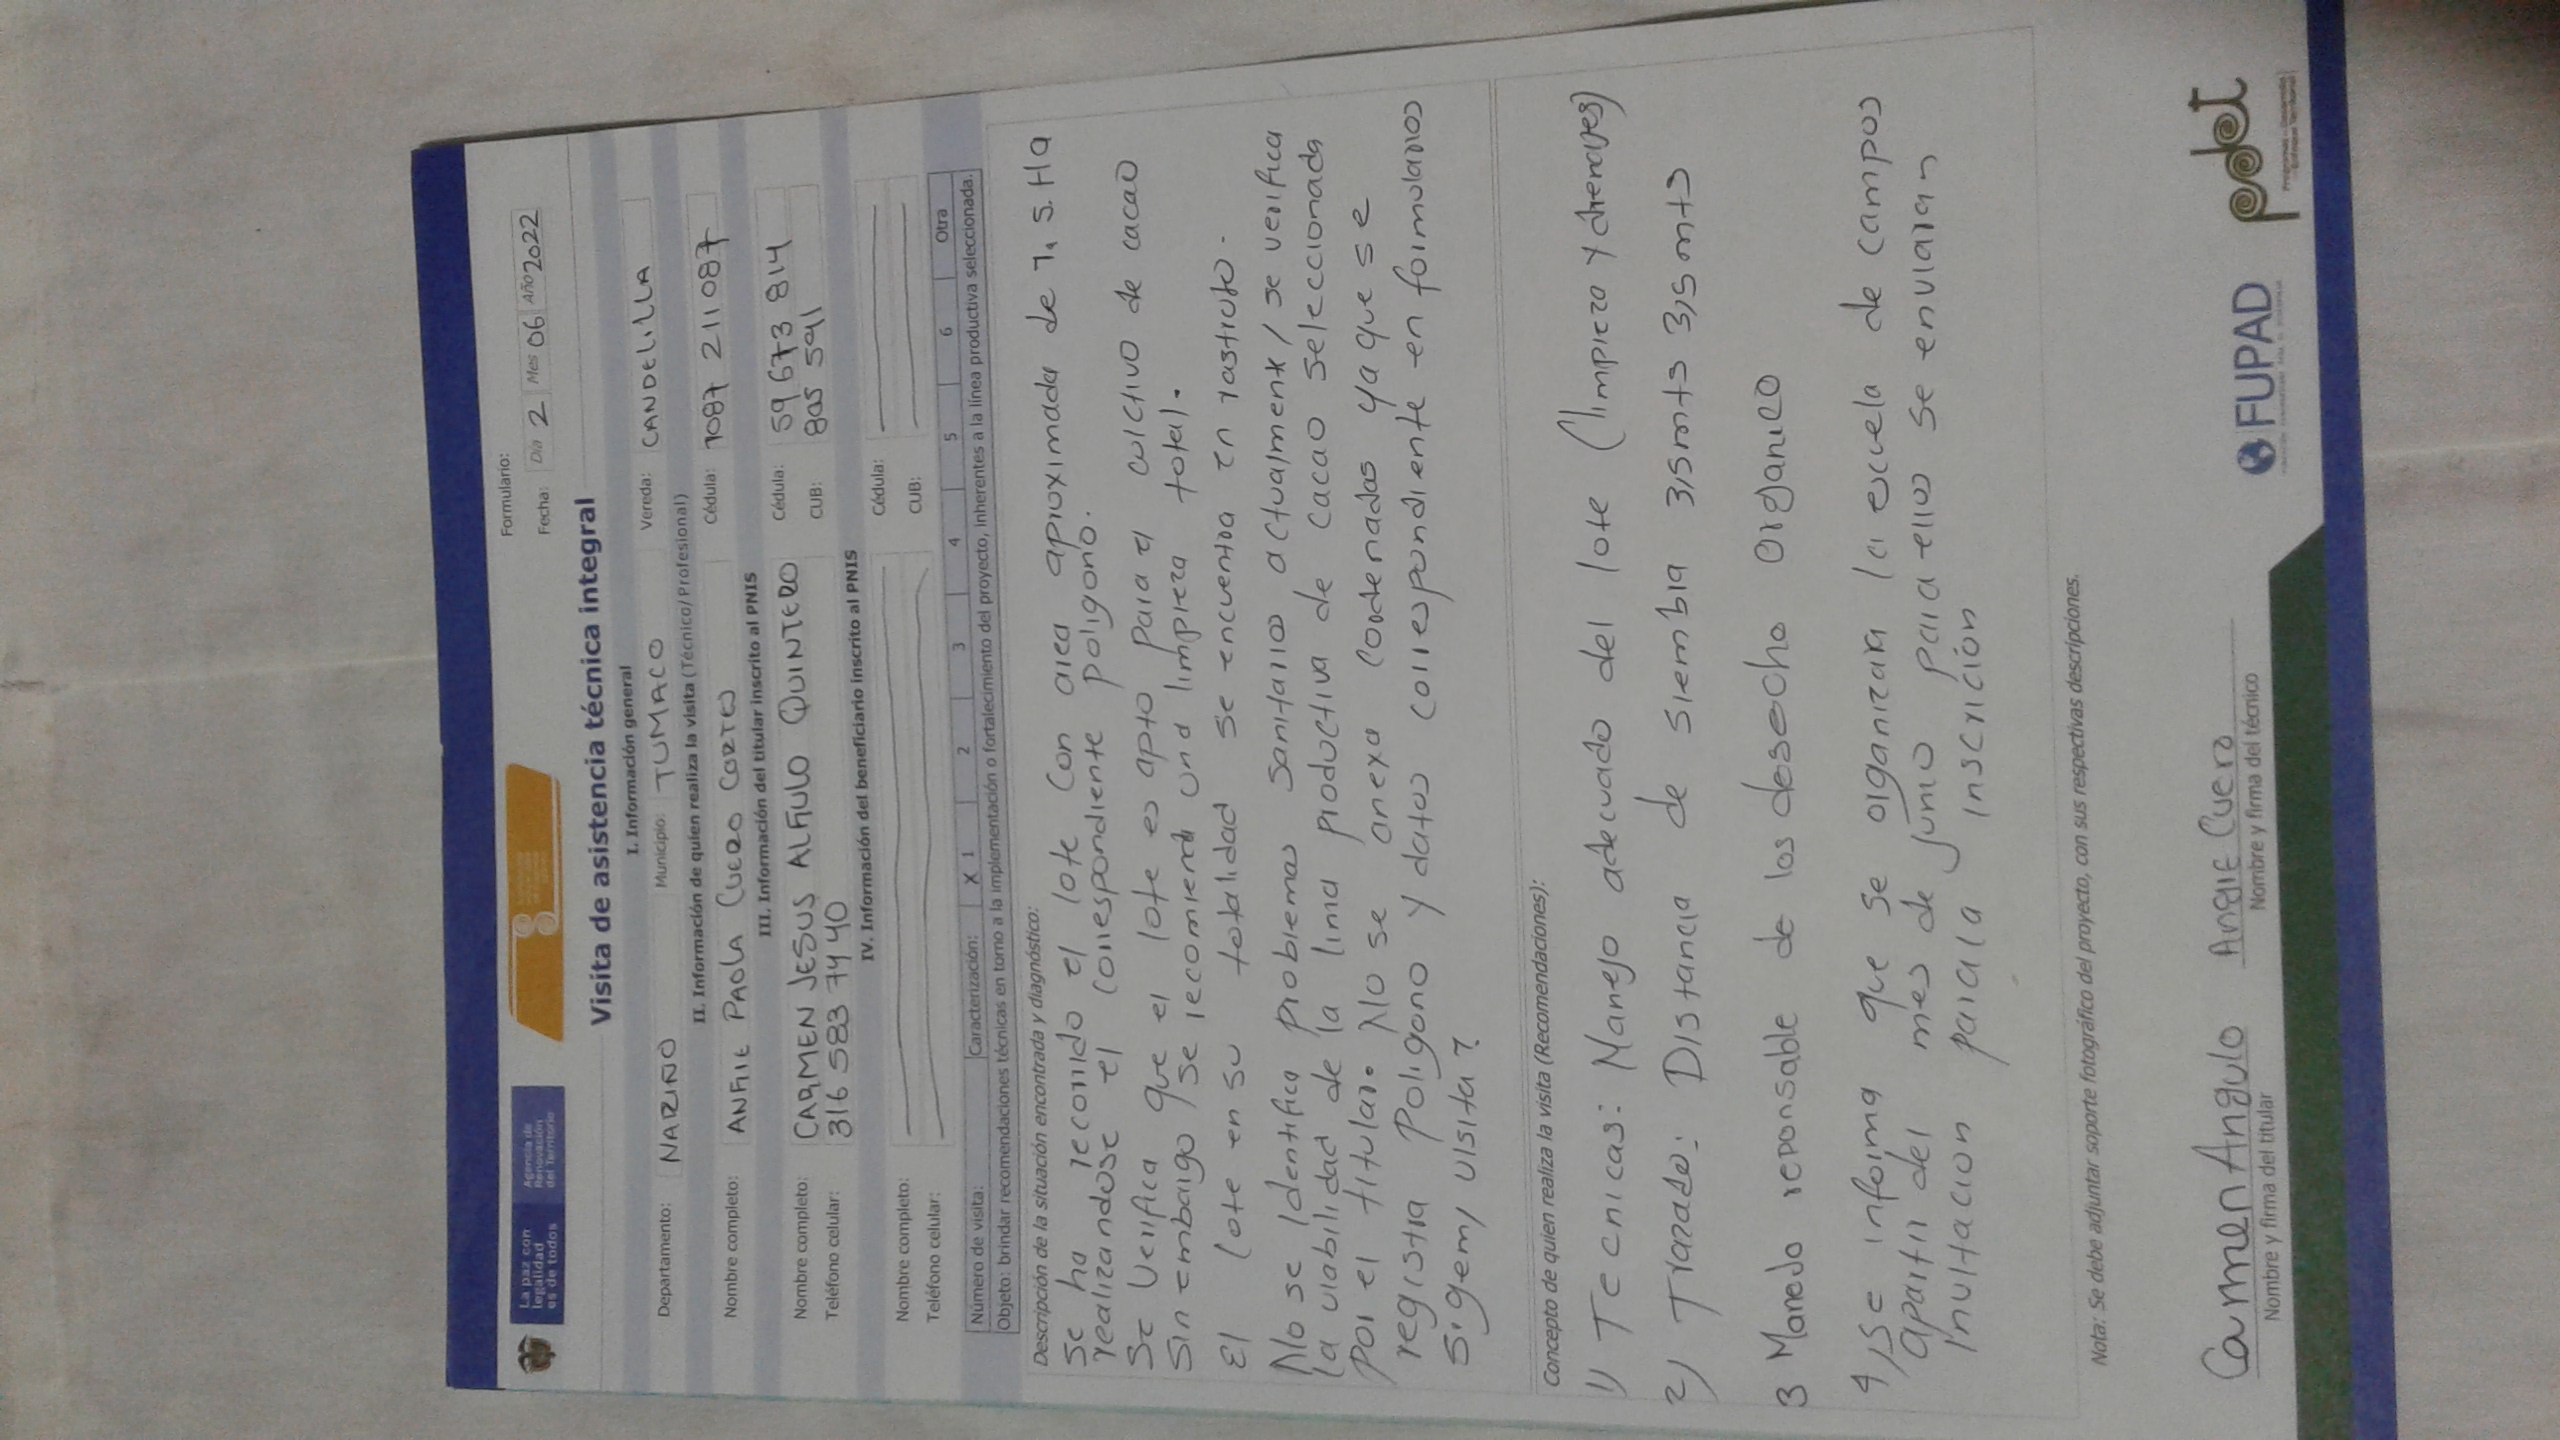 La paz con
legalidad
es de todos
Agencia de
Renovación
del Territorio
Formulario:
Fecha: Día 2 Mes 06 Año 2022
Visita de asistencia técnica integral
I. Información general
Departamento: NARIÑO Municipio: TUMACO Vereda: CANDELILLA
II. Información de quien realiza la visita (Técnico/Profesional)
Nombre completo: ANFIE PAOLA CUERO CORTES Cédula: 1087 211 087
III. Información del titular inscrito al PNIS
Nombre completo: CARMEN JESUS ALFIULO QUINTERO Cédula: 59 673 814
Teléfono celular: 316 583 74 40 CUB: 805 591
IV. Información del beneficiario inscrito al PNIS
Nombre completo: Cédula:
Teléfono celular: CUB:
Número de visita: Caracterización: X 1 2 3 4 5 6 Otra
Objeto: brindar recomendaciones técnicas en torno a la implementación o fortalecimiento del proyecto, inherentes a la línea productiva seleccionada.
Descripción de la situación encontrada y diagnóstico:
Se ha recorrido el lote con area aproximada de 1,5. Ha
realizandose el correspondiente poligono.
Se Verifica que el lote es apto para el cultivo de cacao
Sin embargo se recomienda una limpieza total.
El lote en su totalidad se encuentra en rastrojo.
No se identifica problemas sanitarios actualmente/se verifica
la viabilidad de la linia productiva de cacao seleccionada
por el titular. No se anexa coordenadas ya que se
registra Poligono y datos correspondiente en formularios
Sigem/visita?
Concepto de quien realiza la visita (Recomendaciones):
1) Tecnicas: Manejo adecuado del lote (limpieza y drenajes)
2) Trazado: Distancia de siembra 3,5mts 3,5mts
3 Manejo reponsable de los desecho organico
4) Se informa que se organizara la escuela de campos
apartir del mes de Junio para ellos se enviaran
invitacion para la inscricion
Nota: Se debe adjuntar soporte fotográfico del proyecto, con sus respectivas descripciones.
Carmen Angulo Angie Cuero
Nombre y firma del titular Nombre y firma del técnico
FUPAD
pdet